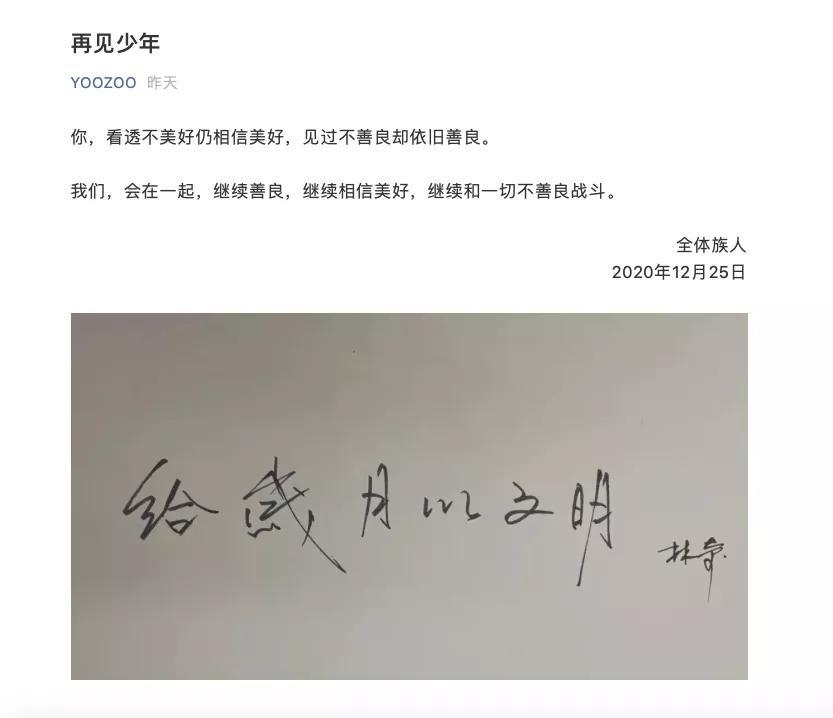 再见少年
YOOZOO 昨天
你，看透不美好仍相信美好，见过不善良却依旧善良。
我们，会在一起，继续善良，继续相信美好，继续和一切不善良战斗。
全体族人
2020年12月25日
给岁月以文明
林奇